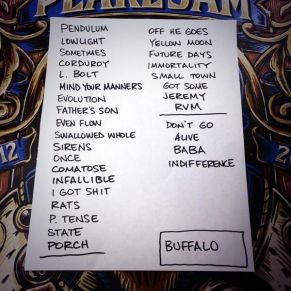 PEARL JAM
12
PENDULUM
LOWLIGHT
SOMETIMES
CORDUROY
L. BOLT
MIND YOUR MANNERS
EVOLUTION
FATHER'S SON
EVEN FLOW
SWALLOWED WHOLE
SIRENS
ONCE
COMATOSE
INFALLIBLE
I GOT SHIT
RATS
P. TENSE
STATE
PORCH
OFF HE GOES
YELLOW MOON
FUTURE DAYS
IMMORTALITY
SMALL TOWN
GOT SOME
JEREMY
RVM
DON'T GO
ALIVE
BABA
INDIFFERENCE
BUFFALO